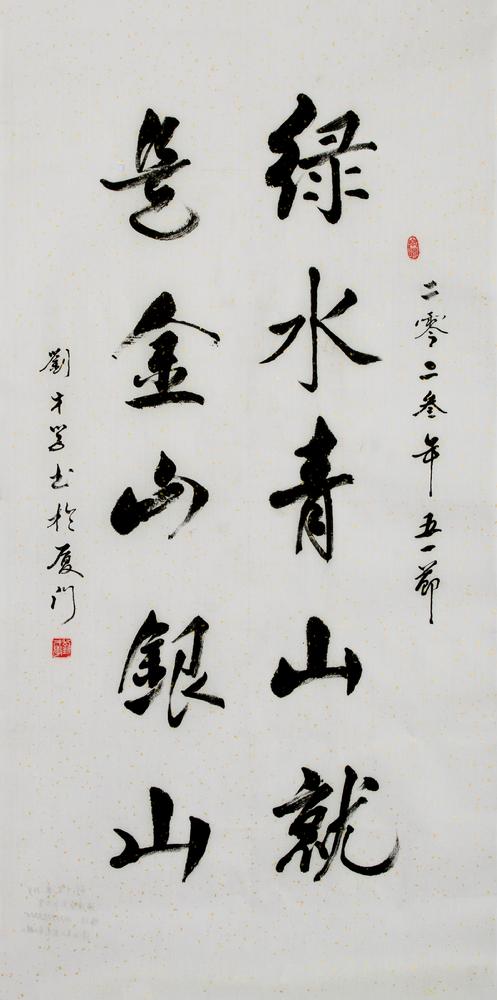 二零二叁年五一節
绿水青山就
是金山銀山
劉才学书於厦门